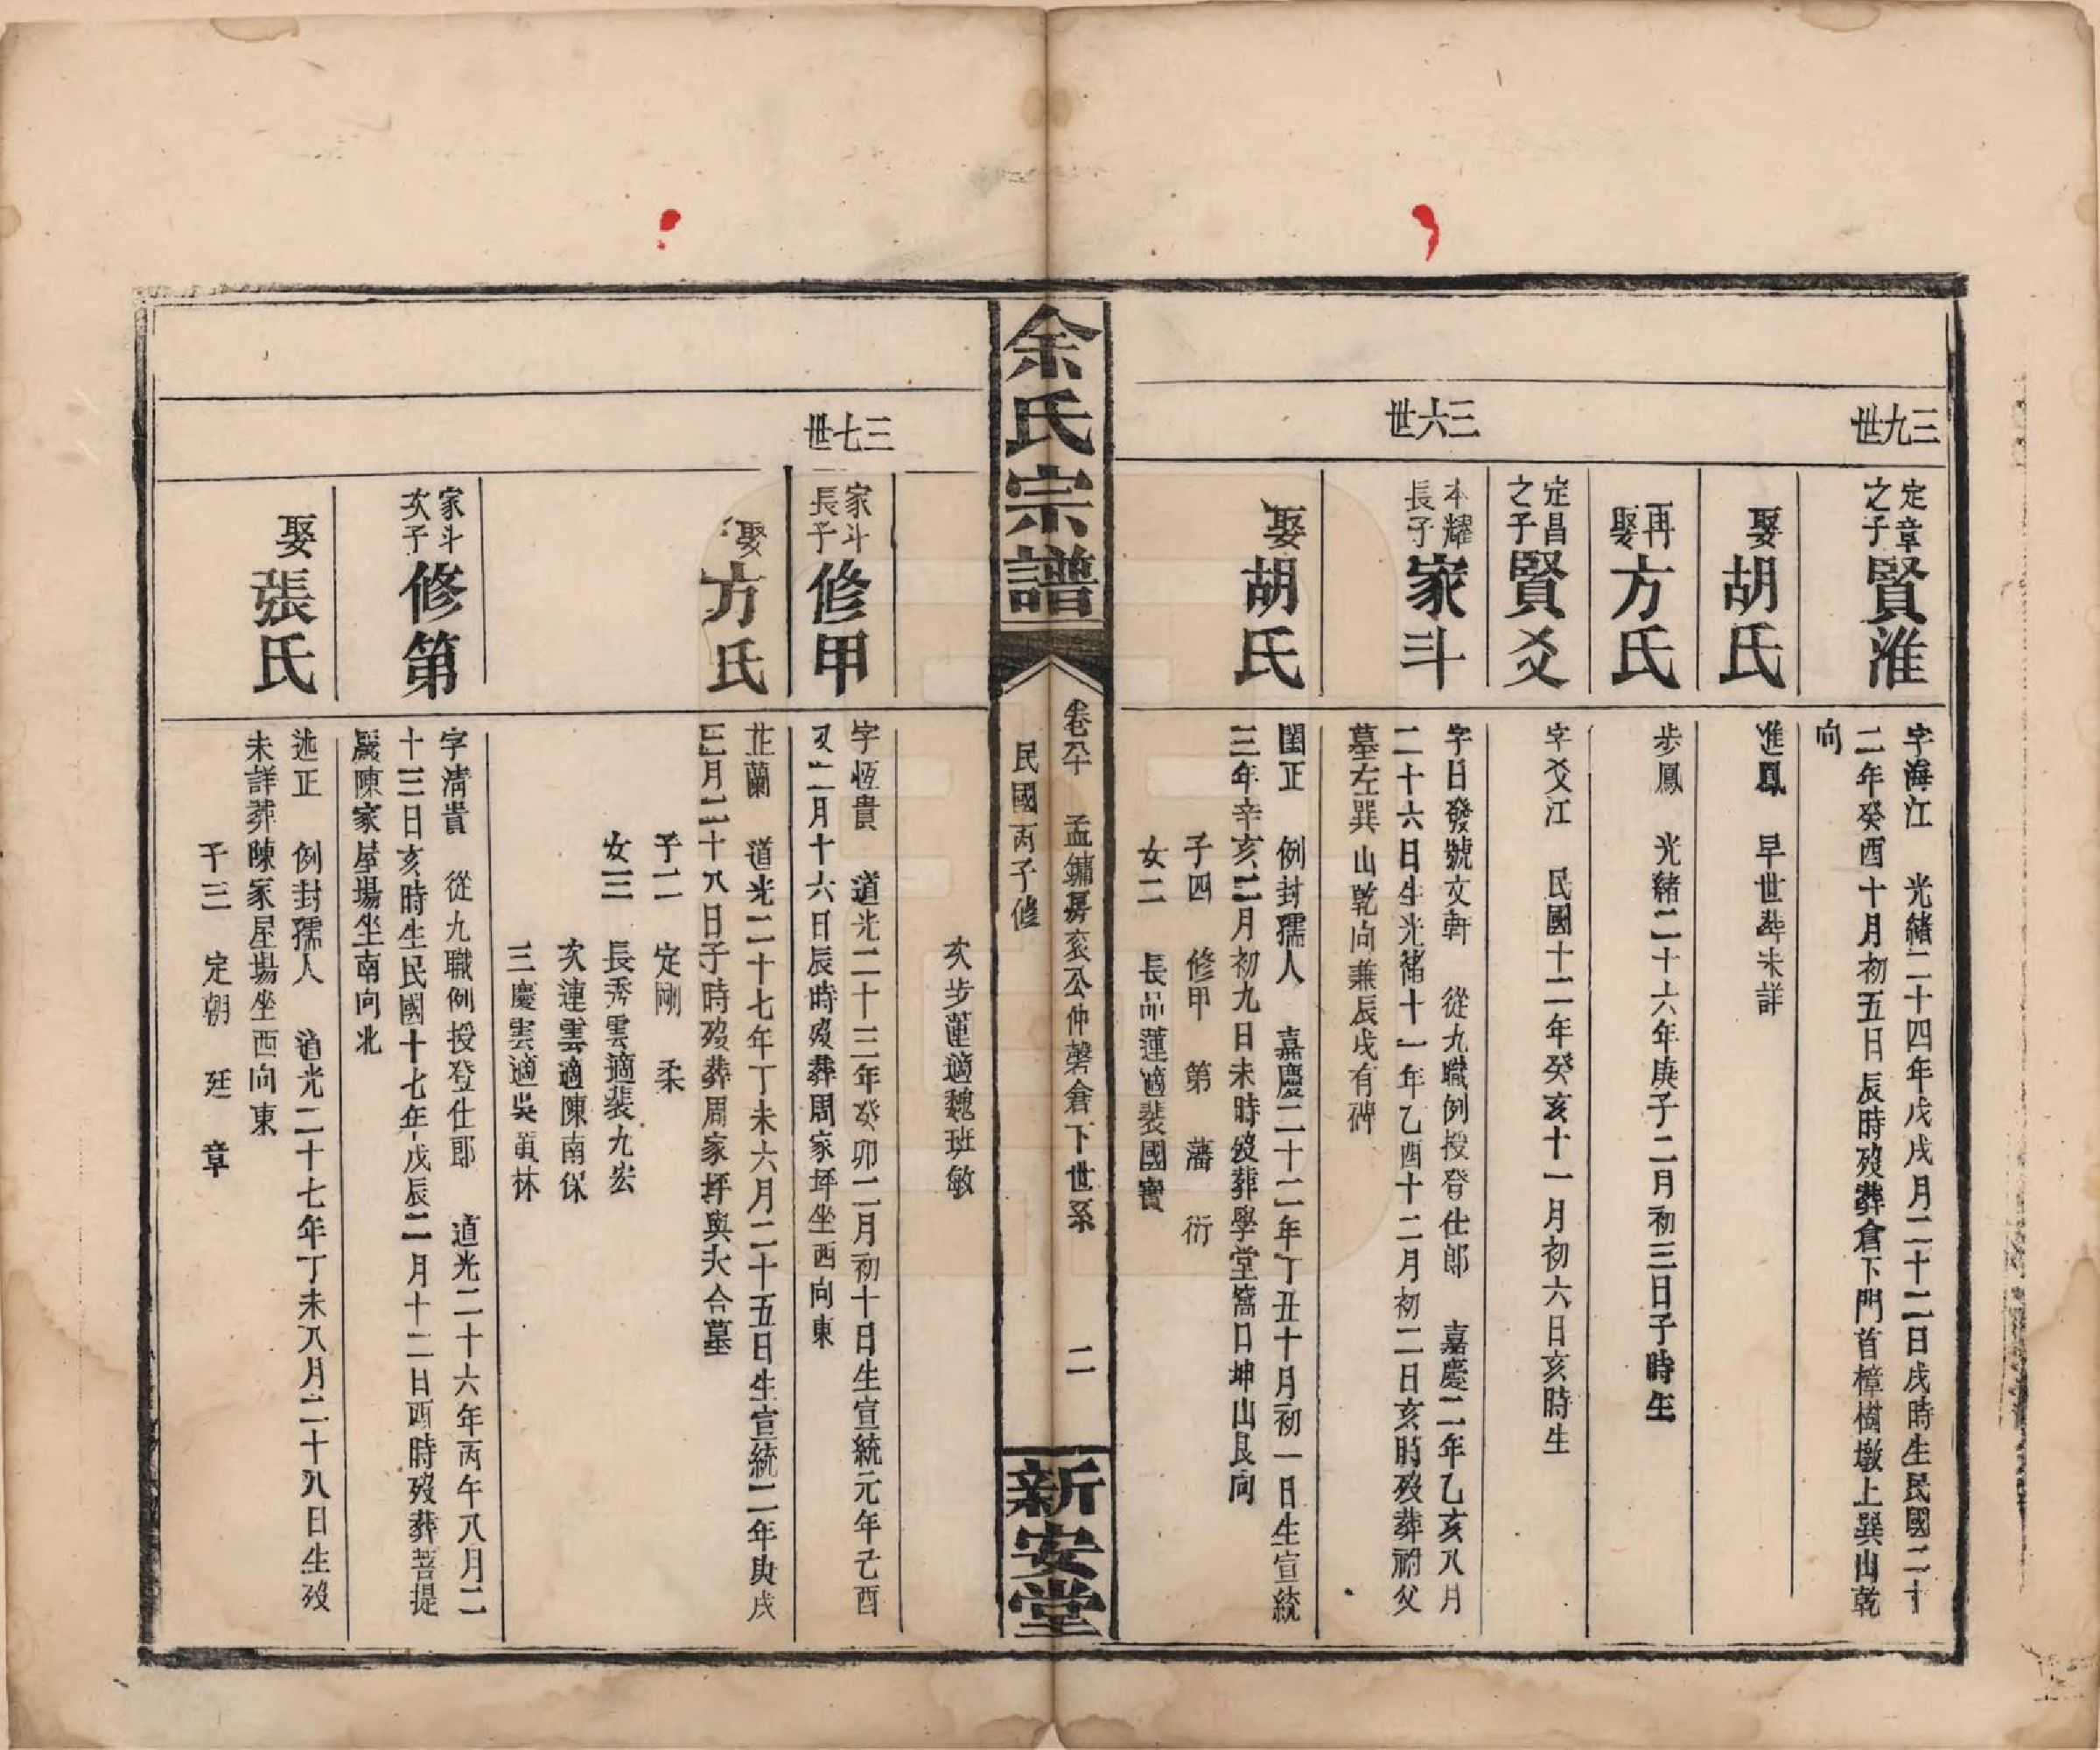 三九世
定章之子賢淮
字海江　光緒二十四年戊戌月二十二日戌時生民國二十
二年癸酉十月初五日辰時歿葬倉下門首樟樹墩上巽山乾
向
娶胡氏
進鳳　早世葬未詳
再娶方氏
步鳳　光緒二十六年庚子二月初三日子時生
定昌之子賢爻
字爻江　民國十二年癸亥十一月初六日亥時生
三六世
本耀長子家斗
字日發號文軒　從九職例授登仕郎　嘉慶二年乙亥八月
二十六日生光緒十一年乙酉十二月初二日亥時歿葬祔父
墓左巽山乾向兼辰戌有碑
娶胡氏
閨正　例封孺人　嘉慶二十二年丁丑十月初一日生宣統
三年辛亥二月初九日未時歿葬學堂窩口坤山艮向
子四　修甲　第　藩　衍
女二　長品蓮適裴國寶
余氏宗譜
卷卆　孟鏞房亥公仲磬倉下世系　二
民國丙子修
新安堂
次步蓮適魏班敏
三七世
家斗長子修甲
字恆貴　道光二十三年癸卯二月初十日生宣統元年己酉
又二月十六日辰時歿葬周家坪坐西向東
娶方氏
芷蘭　道光二十七年丁未六月二十五日生宣統二年庚戌
三月二十八日子時歿葬周家坪與夫合墓
子二　定剛　柔
女三　長秀雲適裴九宏
次連雲適陳南保
三慶雲適吳貢林
家斗次子修第
字清貴　從九職例授登仕郎　道光二十六年丙午八月二
十三日亥時生民國十七年戊辰二月十二日酉時歿葬菩提
嚴陳家屋場坐南向北
娶張氏
述正　例封孺人　道光二十七年丁未八月二十八日生歿
未詳葬陳家屋場坐西向東
子三　定朝　廷　章